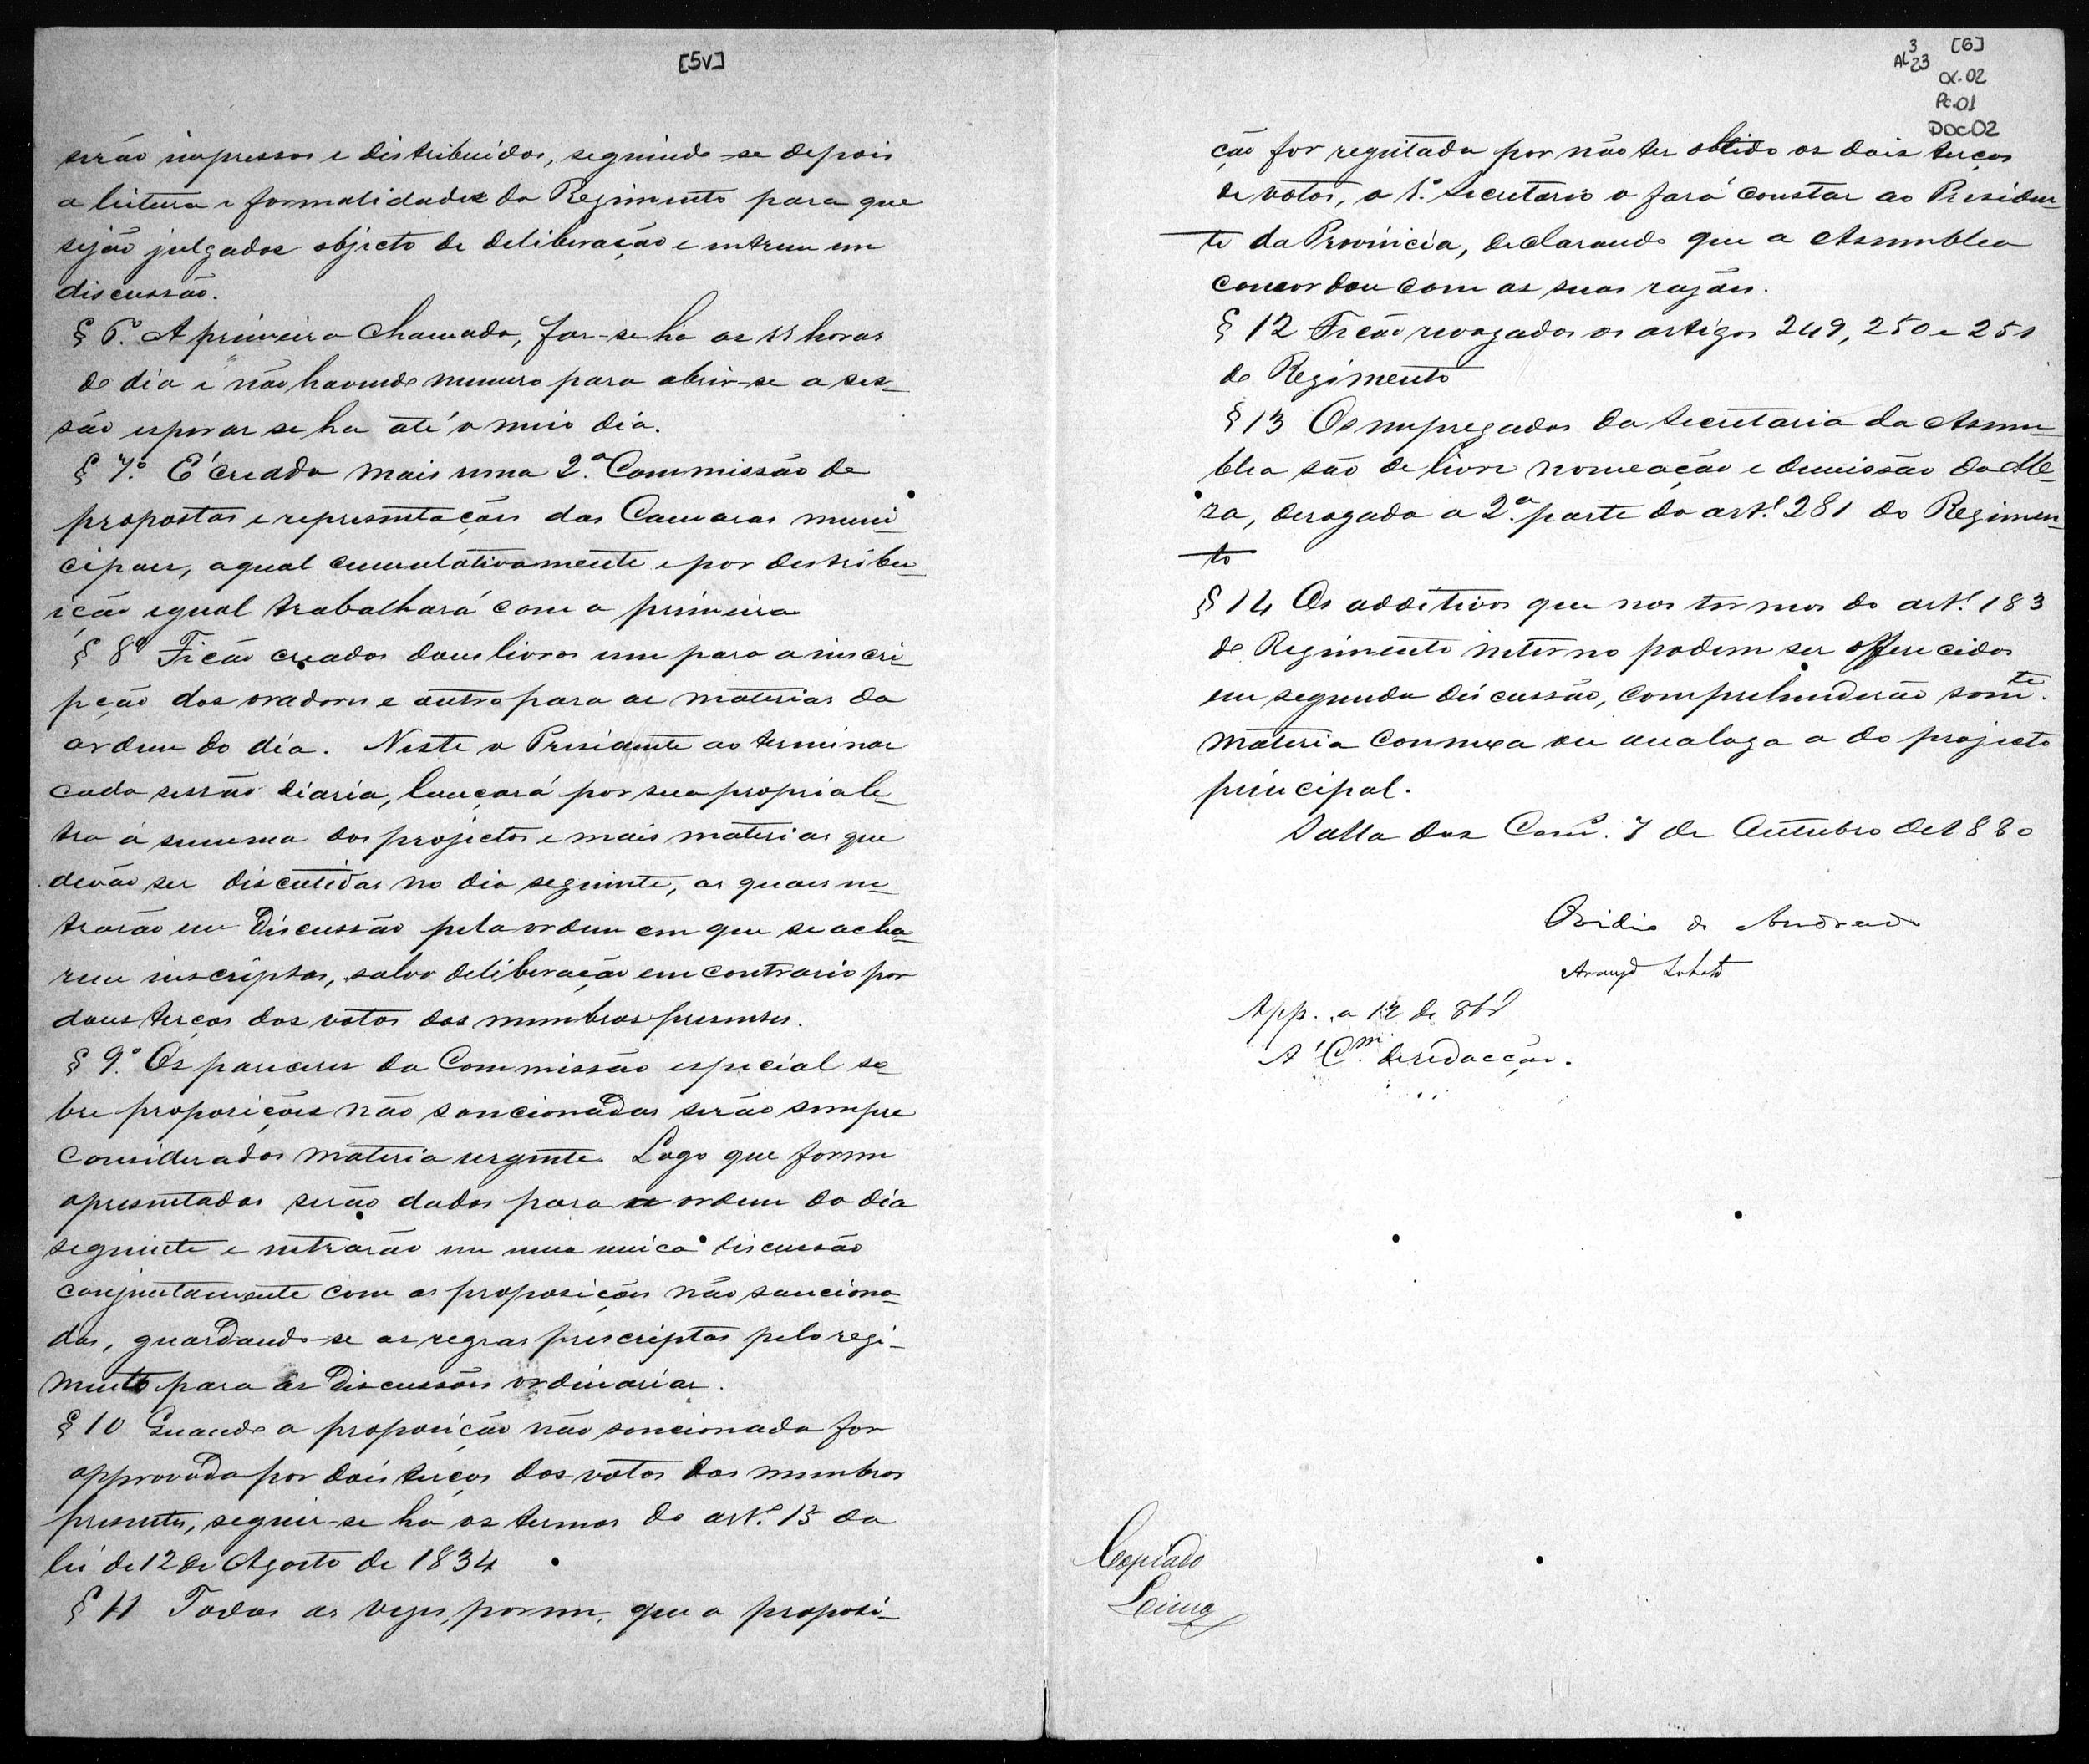 [5v]
serão impressos e distribuidos, seguindo-se depois
a leitura e formalidades do Regimento para que
sejão julgados objecto de deliberação e entrem em
discussão.
§ 6º. A primeira chamada, far-se ha as 11 horas
do dia e não havendo numero para abrir-se a ses-
são esperar se ha até o meio dia.
§ 7º. É creada mais uma 2.ª Commissão de
propostas e representações das Camaras muni
cipaes, a qual cumulativamente e por destribu-
ição egual trabalhará com a primeira
§ 8º Ficão creados dous livros um para a inscri
pção dos oradores e outro para as materias da
ordem do dia. Neste o Presidente ao terminar
cada sessão diaria, lançará por sua propria le-
tra a summa dos projectos e mais materias que
devão ser discutidas no dia seguinte, as quaes en-
trarão em discussão pela ordem em que se acha-
rem inscriptas, salvo deliberação em contrario por
dous terços dos votos dos membros presentes.
§ 9º. Os pareceres da Commissão especial so-
bre proposições não sancionadas serão sempre
considerados materia urgente. Logo que forem
apresentados serão dados para a ordem do dia
seguinte e entrarão em uma unica discussão
conjuntamente com as proposições não sanciona-
das, guardando-se as regras prescriptas pelo regi-
mento para as discussões ordinarias.
§ 10 Quando a proposição não sancionada for
approvada por dois terços dos votos dos membros
presentes, seguir-se ha os termos do art.º 15 da
lei de 12 de Agosto de 1834
§ 11 Todas as vezes, porem, que a proposi-
[6]
AL 3
23
CX.02
Pc.01
DOC.02
ção for regeitada por não ter obtido os dois terços
de votos, o 1.º Secretario o fará constar ao Presiden-
te da Provincia, declarando que a Assemblea
concordou com as suas razões.
§ 12 Ficão revogados os artigos 249, 250 e 251
do Regimento
§ 13 Os empregados da Secretaria da Assem-
blea são de livre nomeação e demissão da Me-
za, derogada a 2.ª parte do art.º 281 do Regimen-
to
§ 14 Os additivos que nos termos do art.º 183
do Regimento interno podem ser offerecidos
em segunda discussão, comprehenderão somte.
materia connexa ou analoga a do projecto
principal.
Salla das Com. 7 de Outubro de 1880
Ovidio de Andrade
Araujo Lobato
App. a 12 de 8bº
A' Cm. de redacção.
Copiado
Lima